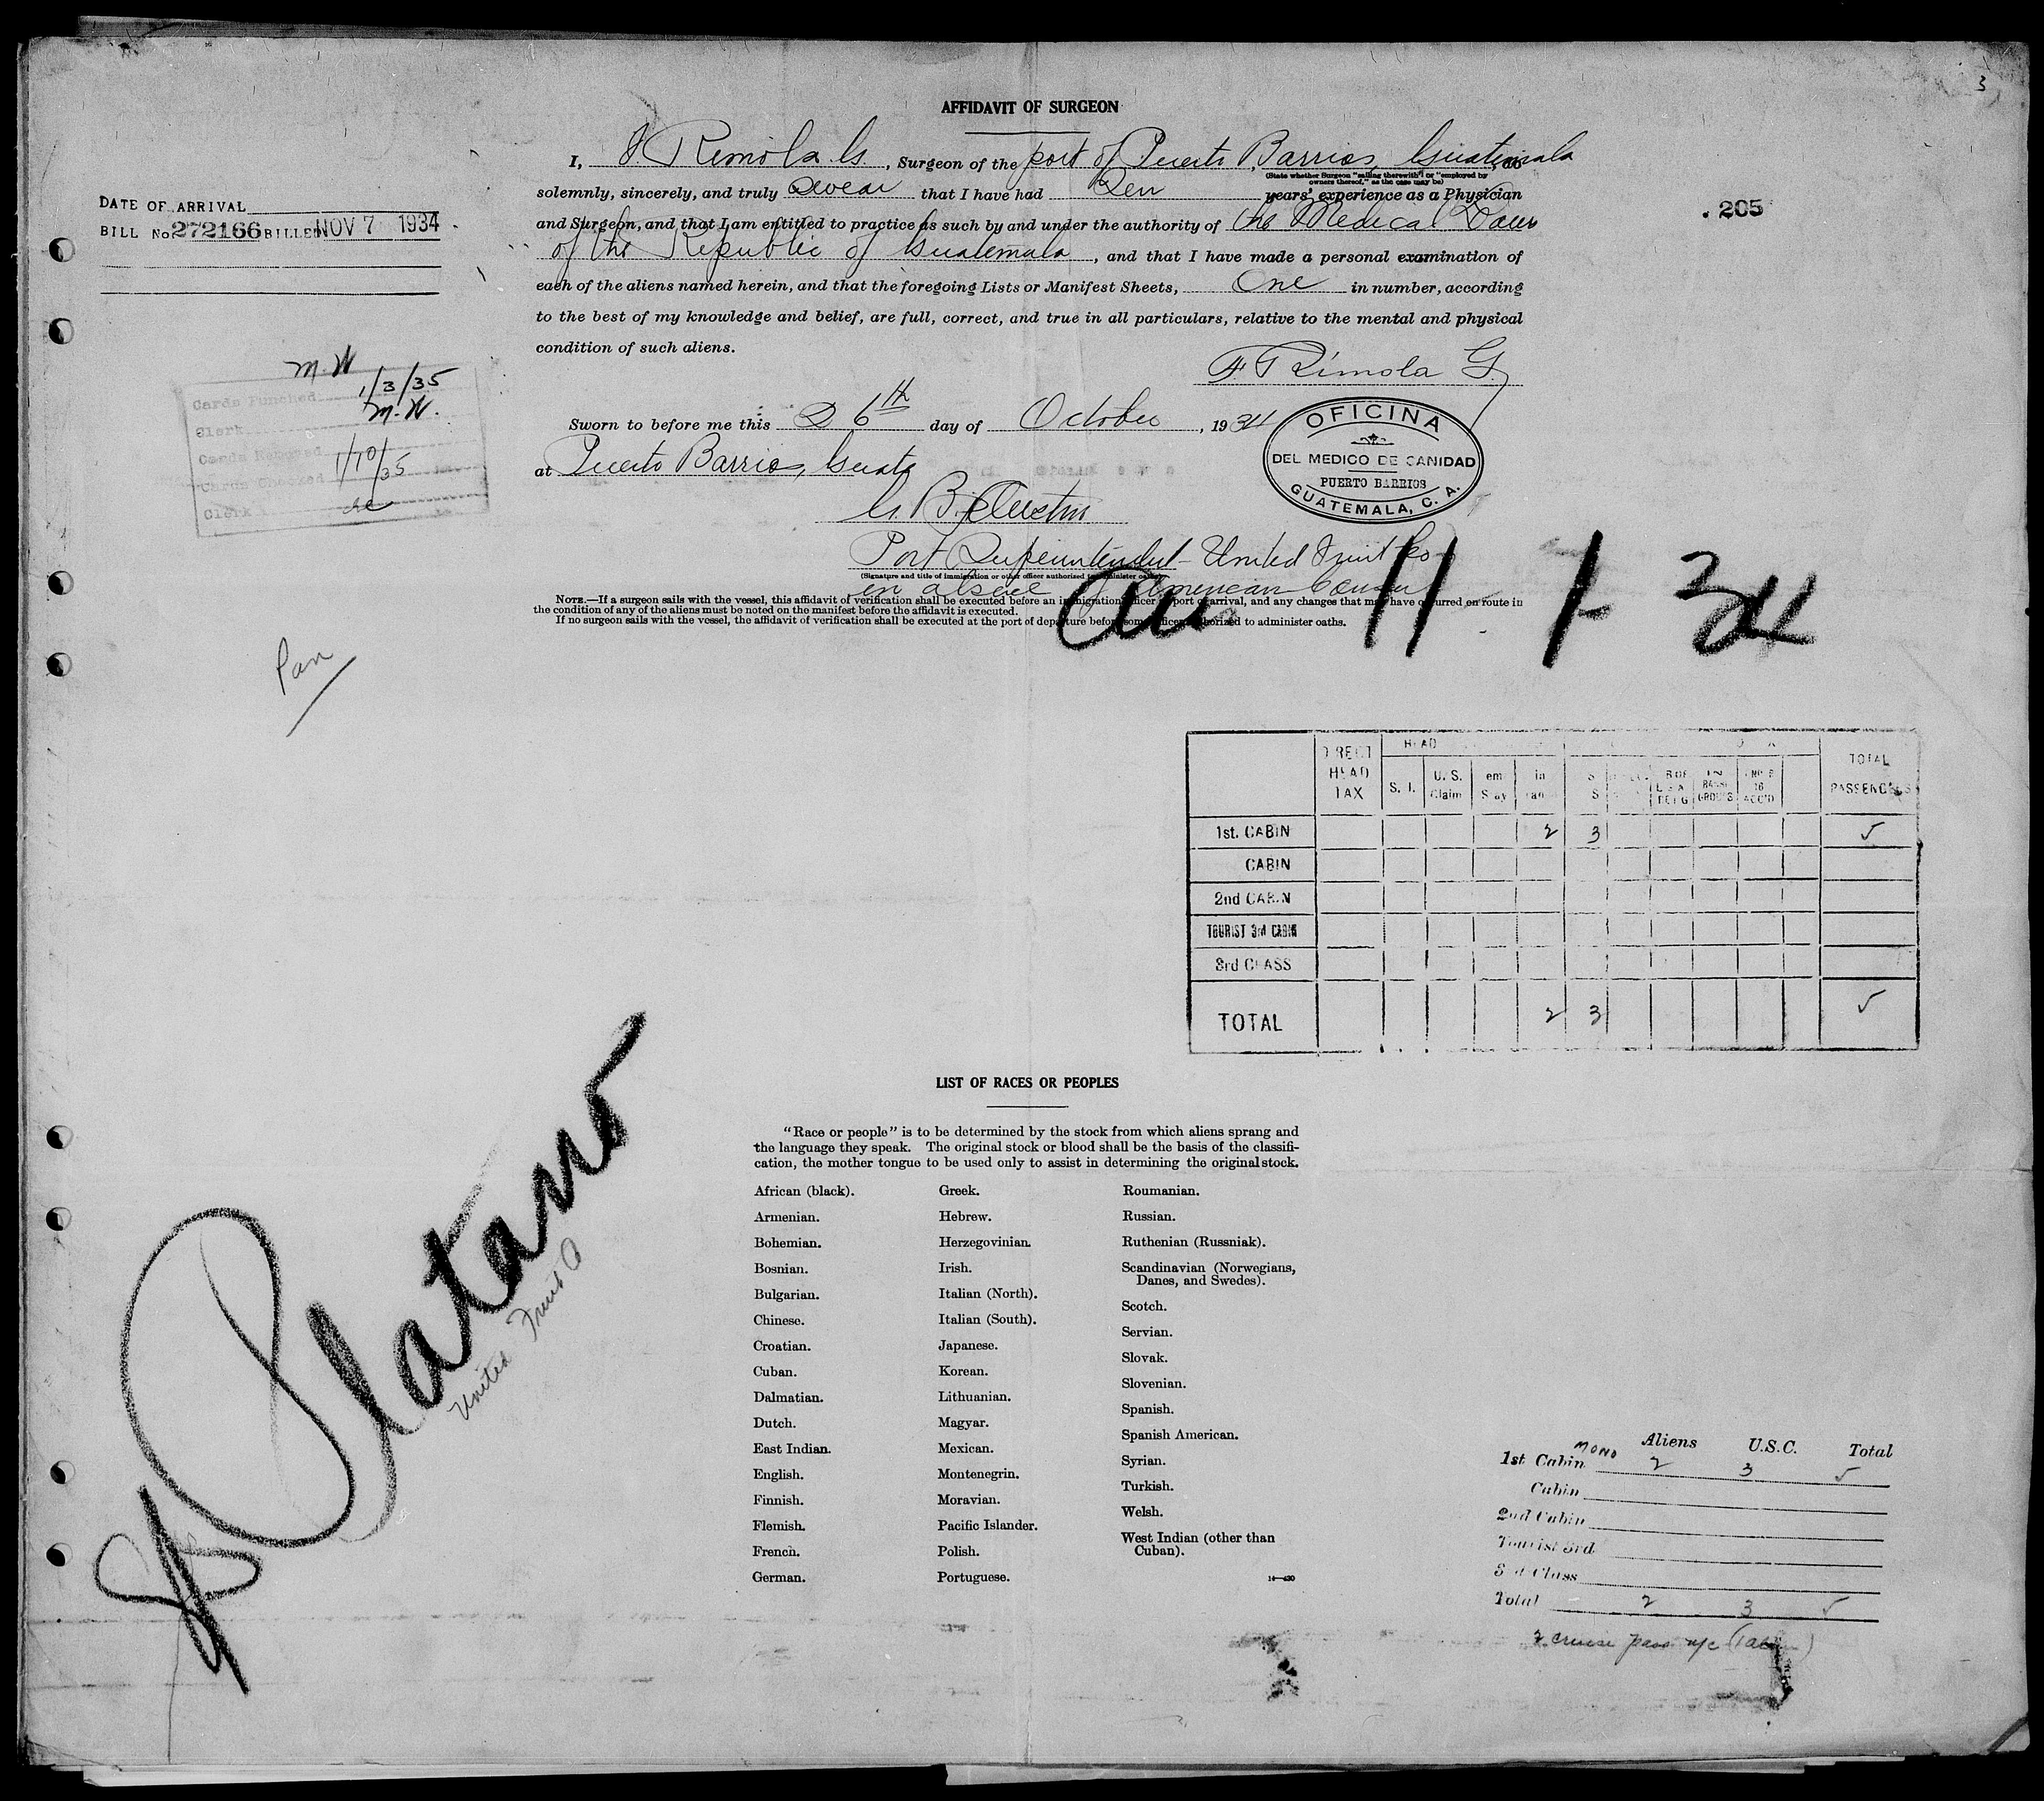 3
AFFIDAVIT OF SURGEON
I, F Rimola G, Surgeon of the port of Puerto Barrios, Guatemala, do
(State whether Surgeon "sailing therewith" or "employed by
owners thereof," as the case may be)
solemnly, sincerely, and truly swear that I have had Ten years' experience as a Physician
and Surgeon, and that I am entitled to practice as such by and under the authority of the Medical Laws
of the Republic of Guatemala, and that I have made a personal examination of
each of the aliens named herein, and that the foregoing Lists or Manifest Sheets, One in number, according
to the best of my knowledge and belief, are full, correct, and true in all particulars, relative to the mental and physical
condition of such aliens.
F. Rimola G.
Sworn to before me this 26th day of October, 1934
at Puerto Barrios, Guata
G. B. Austin
Port Superintendent - United Fruit Co
(Signature and title of immigration or other officer authorized to administer oaths)
in absence of American Consul
NOTE.—If a surgeon sails with the vessel, this affidavit of verification shall be executed before an immigration officer at port of arrival, and any changes that may have occurred en route in
the condition of any of the aliens must be noted on the manifest before the affidavit is executed.
If no surgeon sails with the vessel, the affidavit of verification shall be executed at the port of departure before some officer authorized to administer oaths.
OFICINA
DEL MEDICO DE SANIDAD
PUERTO BARRIOS
GUATEMALA, C. A.
DATE OF ARRIVAL
BILL No 272166 BILLED NOV 7 1934
205
M.W
Cards Punched 1/3/35
Clerk M.W.
Cards Checked 1/10/35
Clerk
11 1 34
Pan
DIRECT HEAD TAX
HEAD
S. I.
U. S. Claim
TOTAL PASSENGERS
1st. CABIN 2 3 5
CABIN
2nd CABIN
TOURIST 3rd CABIN
3rd CLASS
TOTAL 2 3 5
LIST OF RACES OR PEOPLES
"Race or people" is to be determined by the stock from which aliens sprang and
the language they speak. The original stock or blood shall be the basis of the classifi-
cation, the mother tongue to be used only to assist in determining the original stock.
African (black).
Armenian.
Bohemian.
Bosnian.
Bulgarian.
Chinese.
Croatian.
Cuban.
Dalmatian.
Dutch.
East Indian.
English.
Finnish.
Flemish.
French.
German.
Greek.
Hebrew.
Herzegovinian.
Irish.
Italian (North).
Italian (South).
Japanese.
Korean.
Lithuanian.
Magyar.
Mexican.
Montenegrin.
Moravian.
Pacific Islander.
Polish.
Portuguese.
Roumanian.
Russian.
Ruthenian (Russniak).
Scandinavian (Norwegians,
Danes, and Swedes).
Scotch.
Servian.
Slovak.
Slovenian.
Spanish.
Spanish American.
Syrian.
Turkish.
Welsh.
West Indian (other than
Cuban).
Platano
United Fruit Co
Aliens U.S.C. Total
1st Cabin MONO 2 3 5
Cabin
2nd Cabin
Tourist 3rd
3rd Class
Total 2 3 5
2 cruise pass n/c